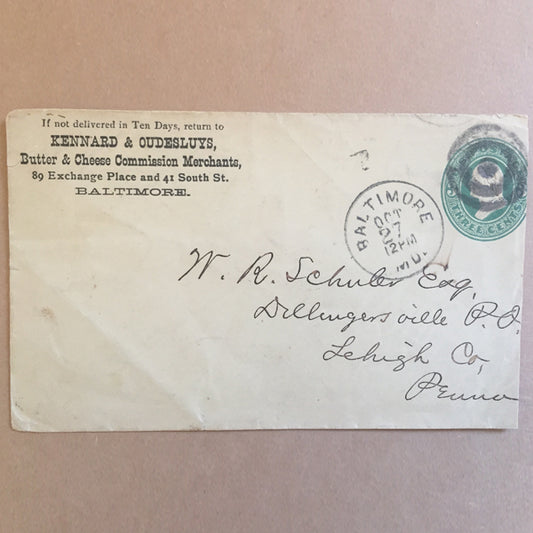 If not delivered in Ten Days, return to
KENNARD & OUDESLUYS,
Butter & Cheese Commission Merchants,
89 Exchange Place and 41 South St.
BALTIMORE.
BALTIMORE
OCT
7
12PM
MD.
THREE CENTS
W. R. Schuler Esq,
Dillingersville P.O.
Lehigh Co,
Penna